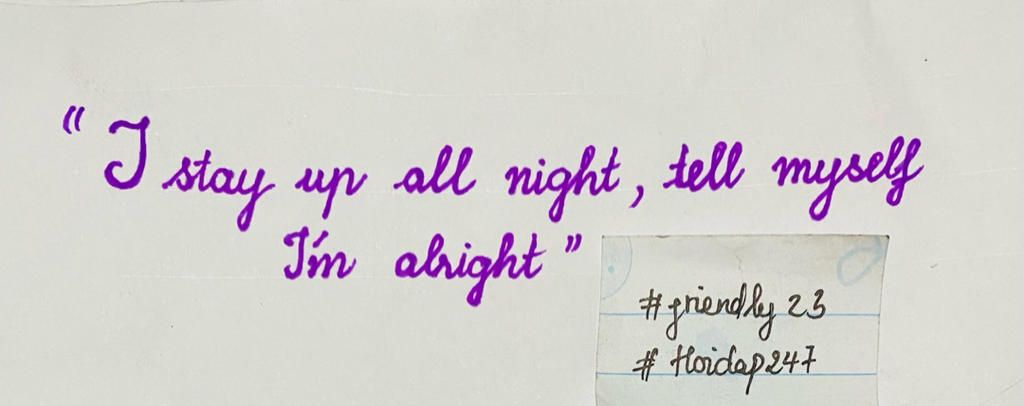 "I stay up all night, tell myself
I'm alright"
#friendly 23
# Hoidap247